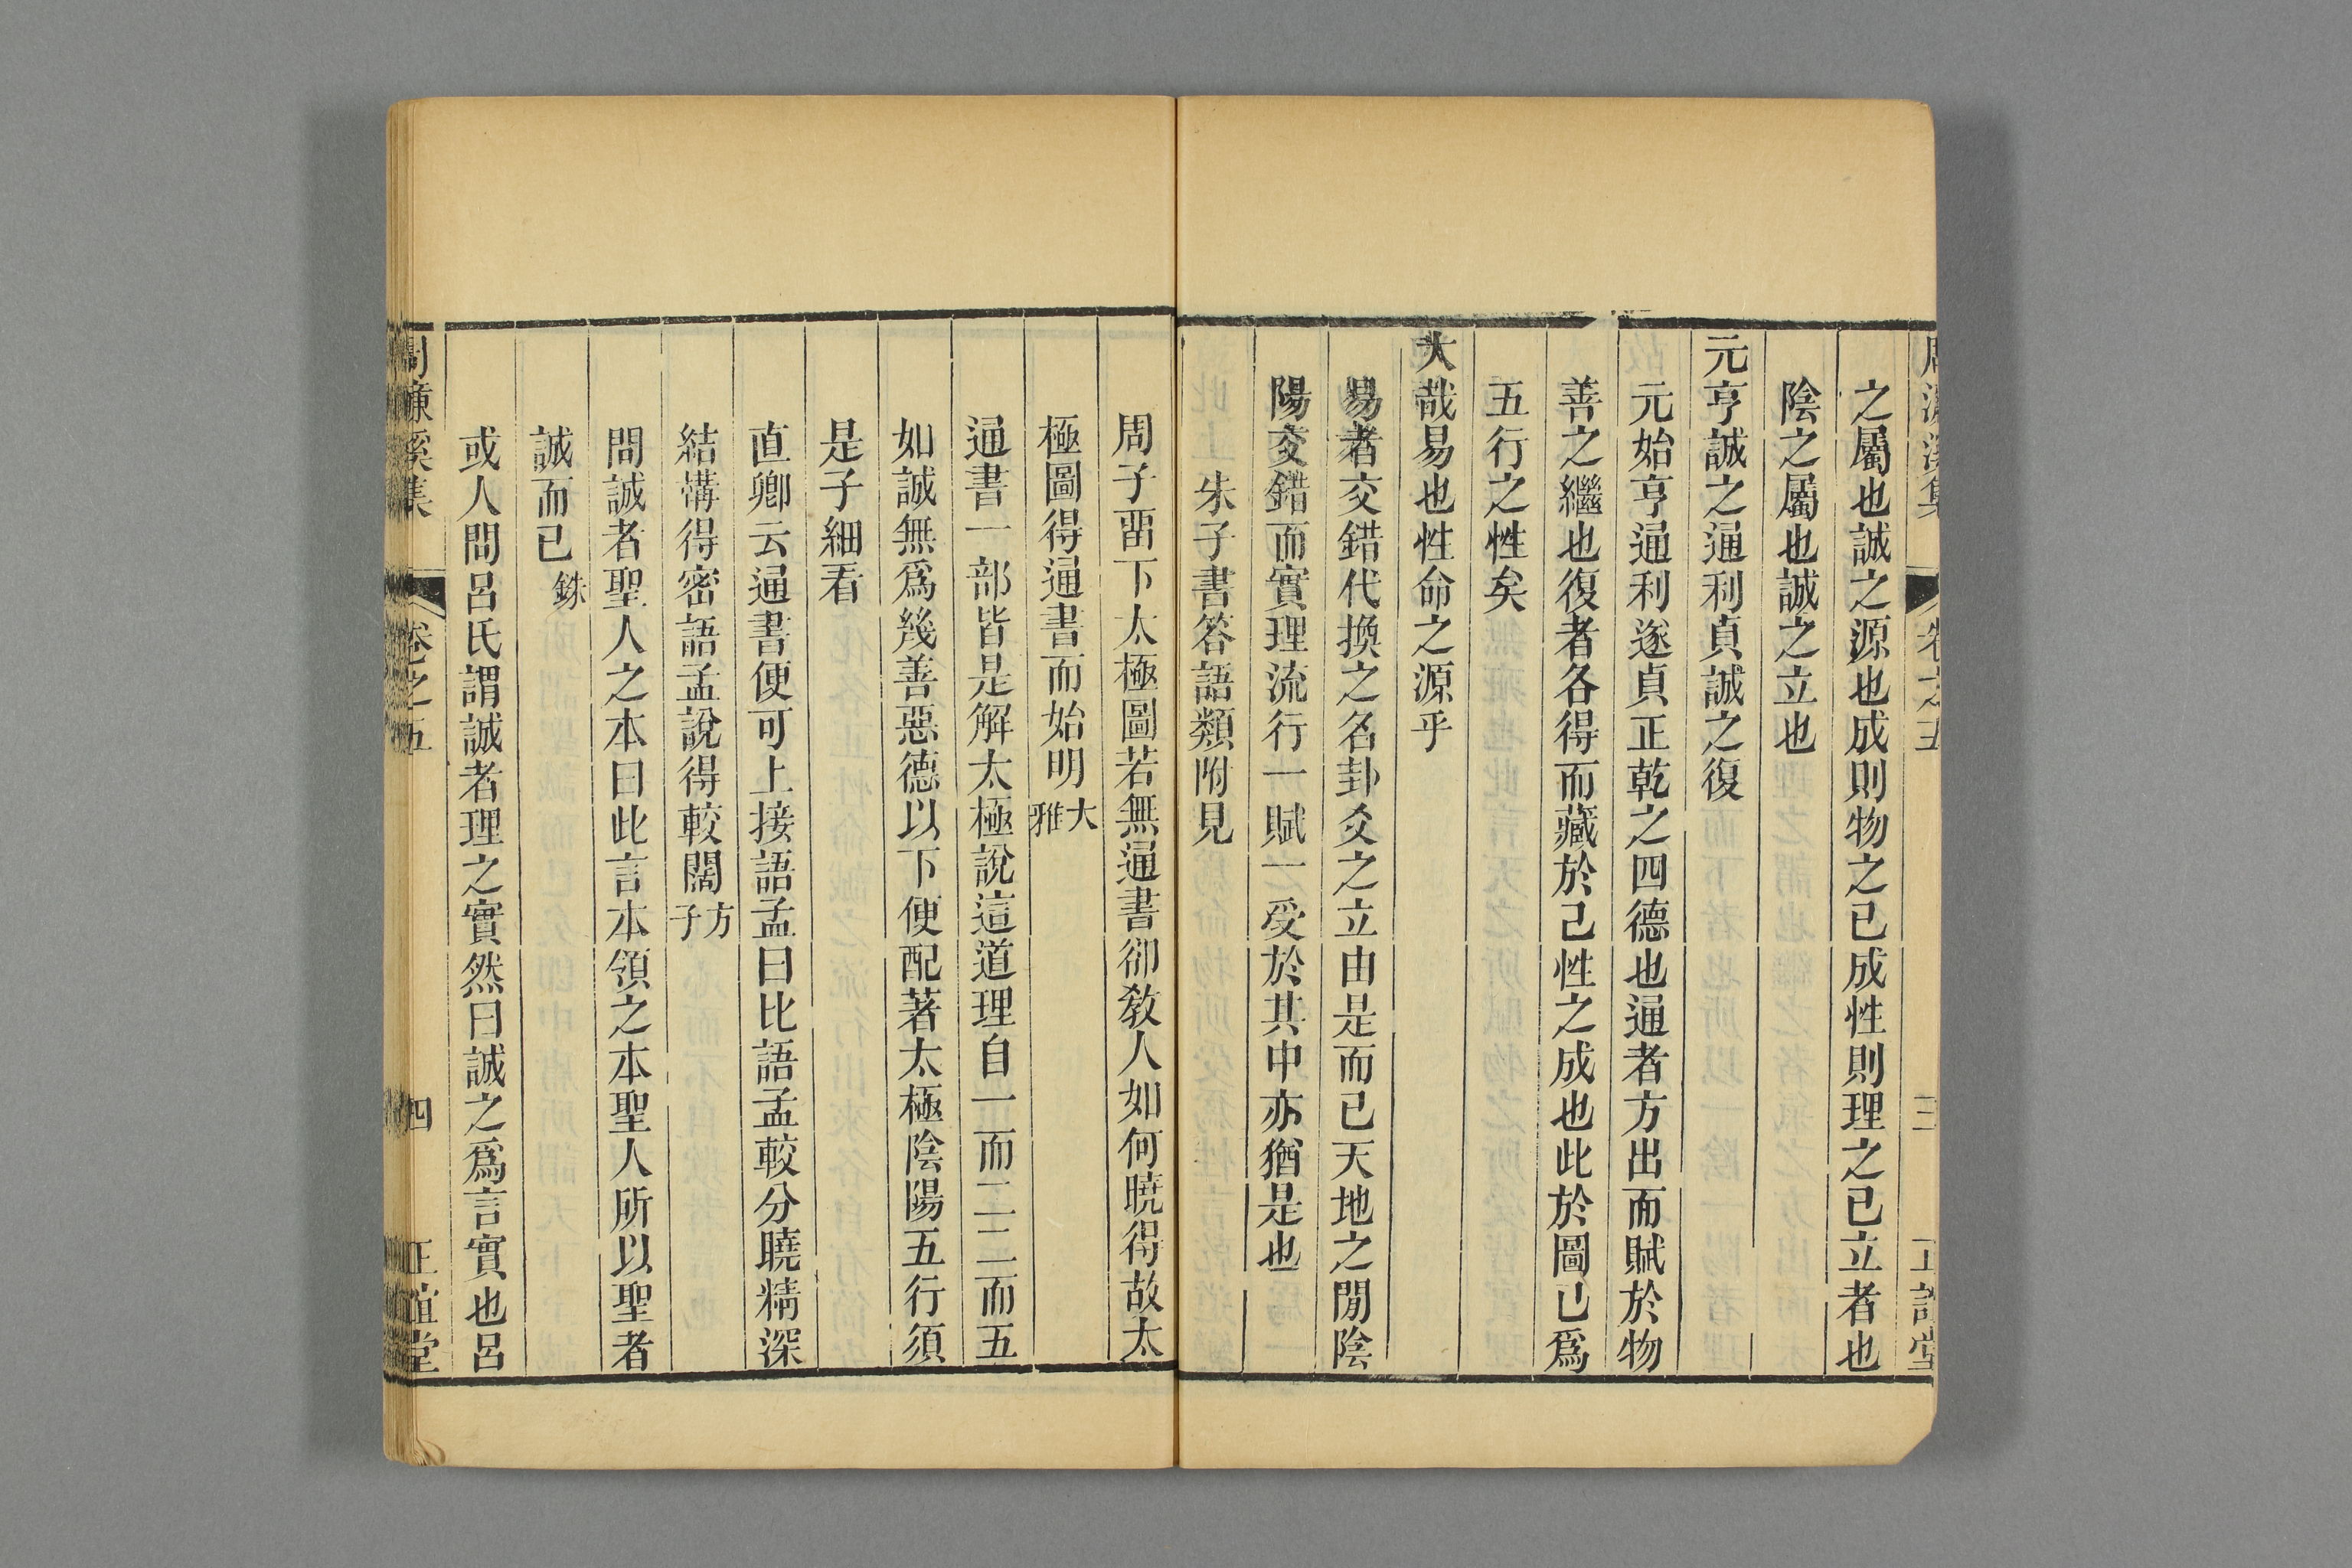 周濂溪集 卷之五 三 正誼堂
之屬也誠之源也成則物之已成性則理之已立者也
陰之屬也誠之立也
元亨誠之通利貞誠之復
元始亨通利遂貞正乾之四德也通者方出而賦於物
善之繼也復者各得而藏於己性之成也此於圖已爲
五行之性矣
大哉易也性命之源乎
易者交錯代換之名卦爻之立由是而已天地之閒陰
陽交錯而實理流行一賦一受於其中亦猶是也
朱子書答語類附見
周子畱下太極圖若無通書卻敎人如何曉得故太
極圖得通書而始明大雅
通書一部皆是解太極說這道理自一而二二而五
如誠無爲幾善惡德以下便配著太極陰陽五行須
是子細看
直卿云通書便可上接語孟曰比語孟較分曉精深
結構得密語孟說得較闊方子
問誠者聖人之本曰此言本領之本聖人所以聖者
誠而已銖
或人問呂氏謂誠者理之實然曰誠之爲言實也呂
周濂溪集 卷之五 四 正誼堂